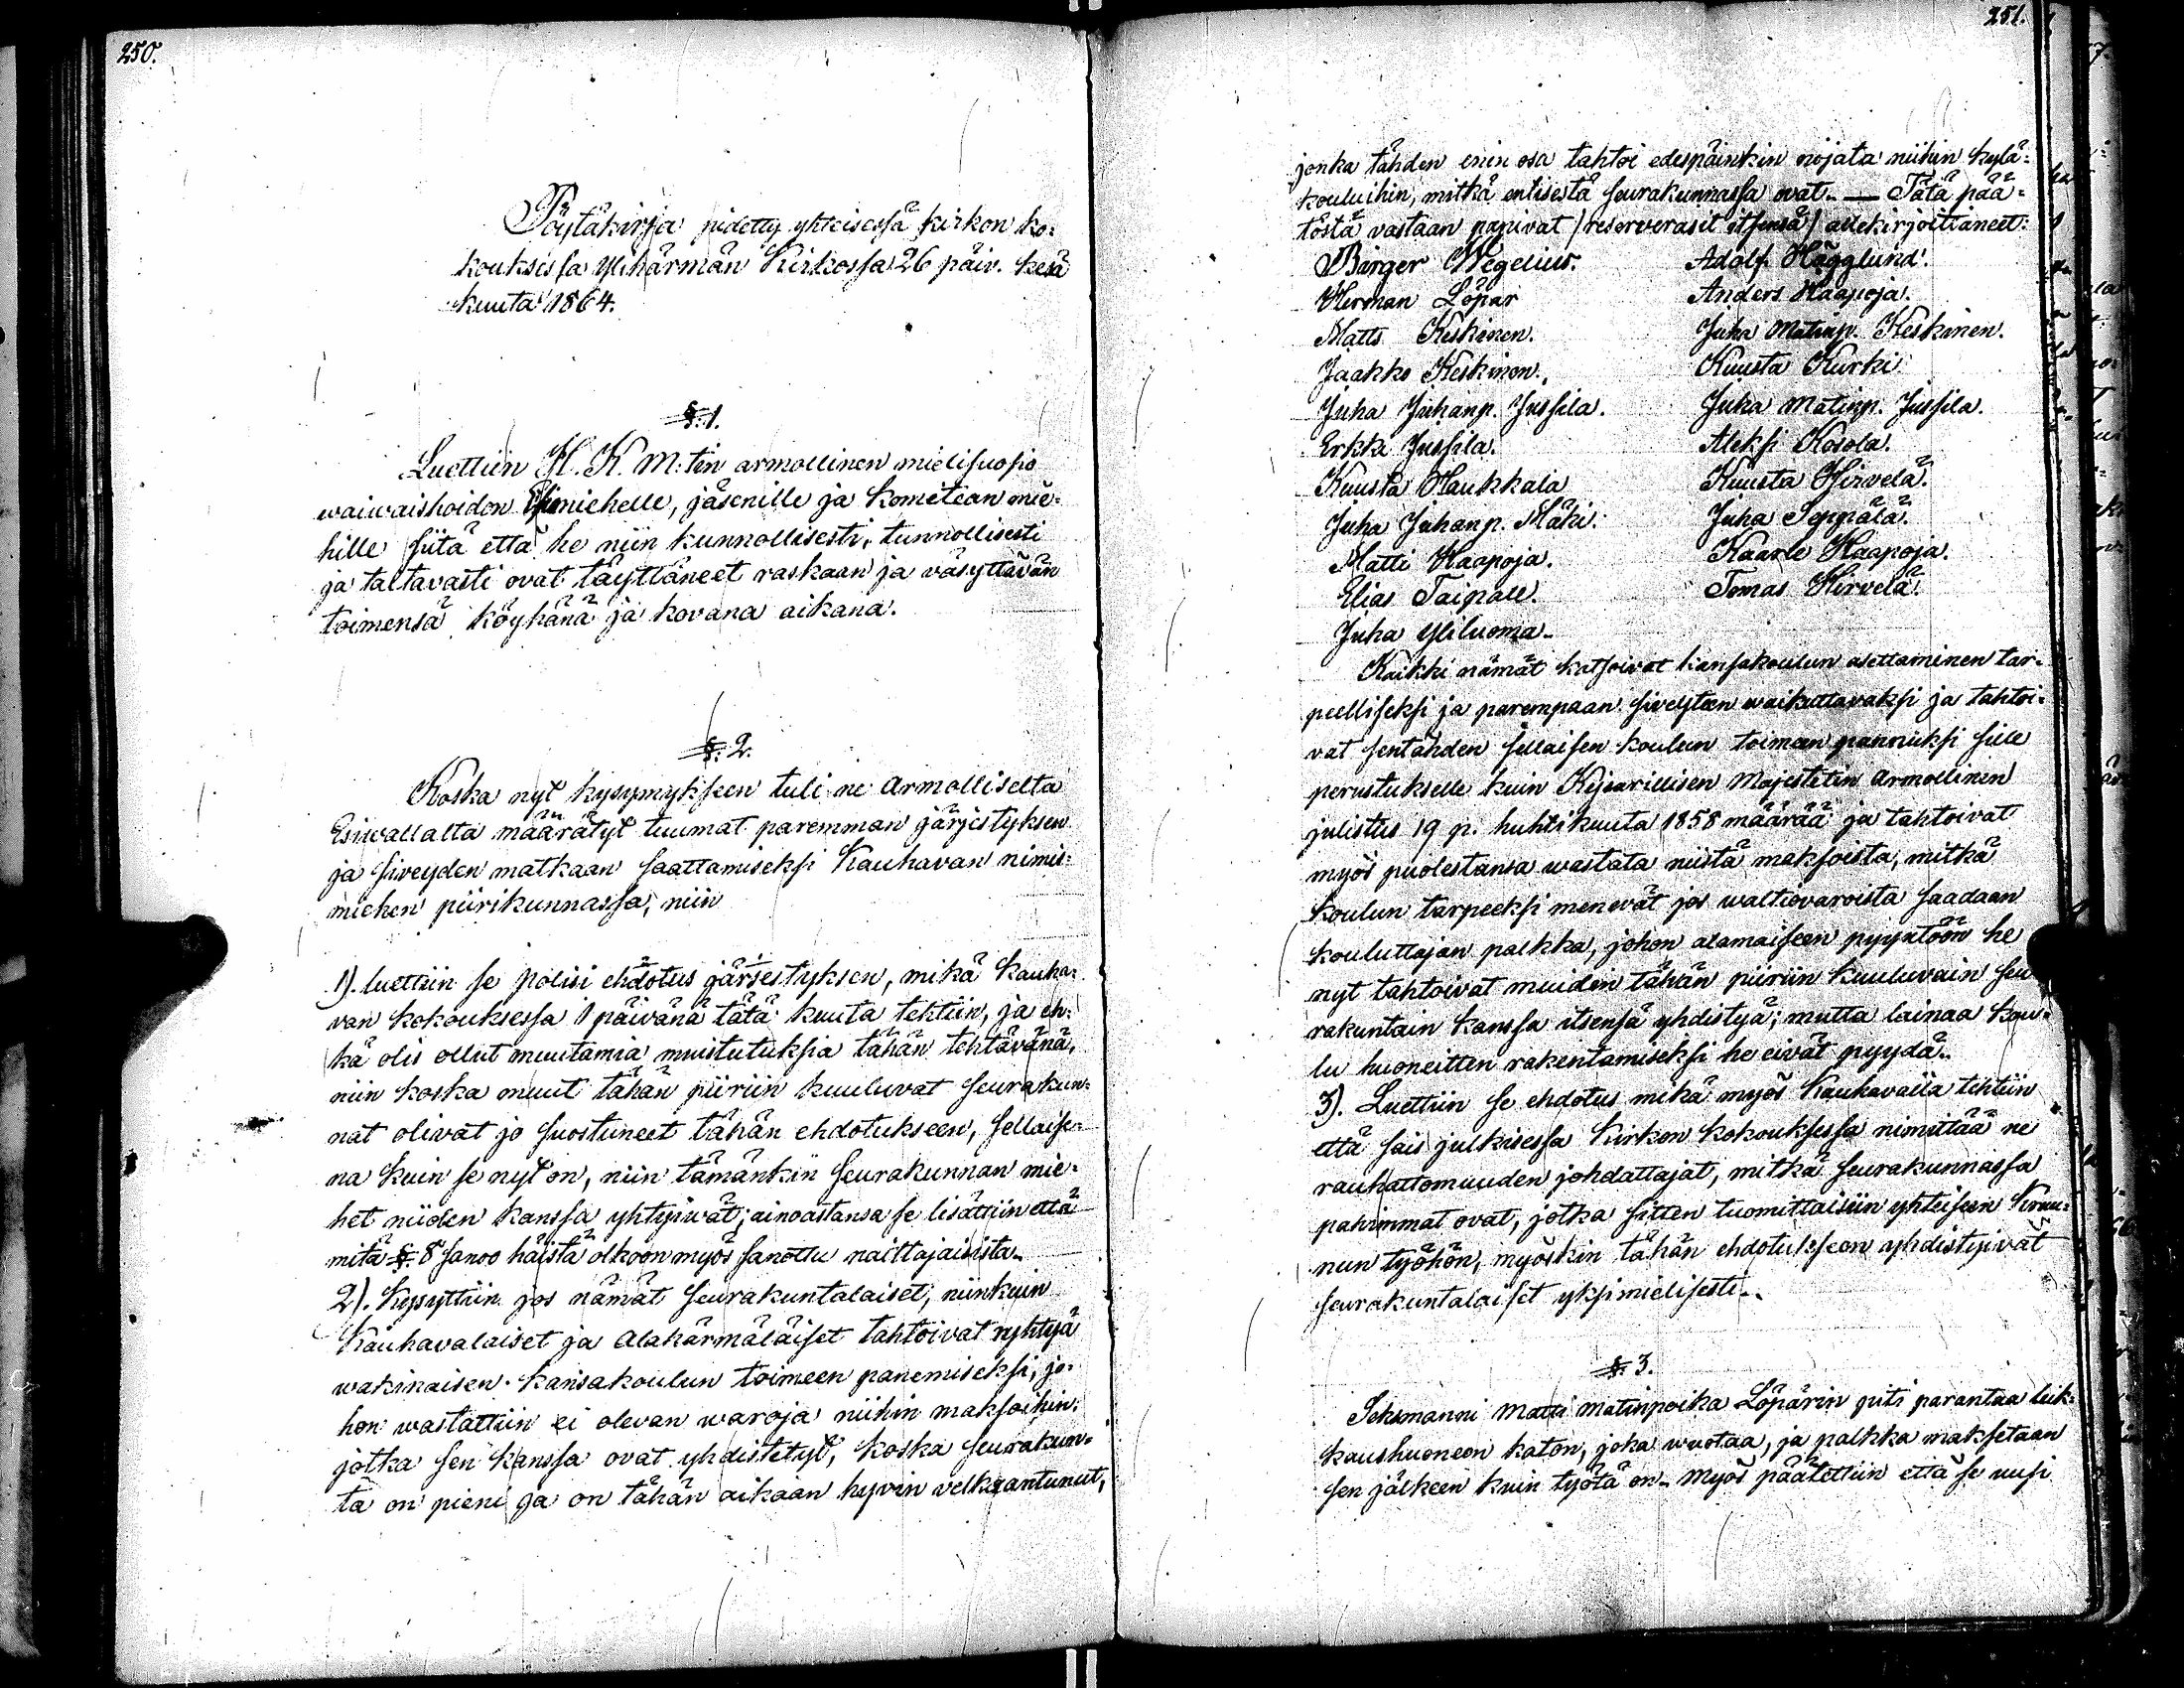 250.
Pöytäkirja pidetty yhteisessä kirkon ko-
kouksissa Ylihärmän Kirkossa 26 päiv. kesä
kuuta 1864.
§. 1.
Luettiin H. K. M:tin armollinen mielisuosio
waiwaishoidon Esimiehelle, jäsenille ja Komitean mie-
hille siitä että he niin kunnollisesti, tunnollisesti
ja taitavasti ovat täyttäneet raskaan ja väsyttävän
toimensa köyhänä ja kovana aikana.
§. 2.
Koska nyt kysymykseen tuli ne Armolliselta
Esiwallalta määrätyt tuumat paremman järjestyksen
ja siveyden matkaan saattamiseksi Kauhavan nimis-
miehen piirikunnassa, niin
1). luettiin se polisi ehdotus järjestyksen, mikä Kauha-
van kokouksessa 1 päivänä tätä kuuta tehtiin, ja eh-
kä olis ollut muutamia muistutuksia tähän tehtävänä,
niin koska muut tähän piiriin kuuluvat seurakun-
nat olivat jo suostuneet tähän ehdotukseen, sellaise-
na kuin se nyt on, niin tämänkin seurakunnan mie-
het niiden kanssa yhtyiwät; ainoastansa se lisättiin että
mitä §. 8 sanoo häistä olkoon myös sanottu naittajaisista.
2). Kysyttiin jos nämät seurakuntalaiset, niinkuin
Kauhavalaiset ja Alahärmäläiset tahtoivat ryhtyä
wakinaisen kansakoulun toimeen panemiseksi, jo-
hon wastattiin ei olevan waroja niihin maksoihin,
jotka sen kanssa ovat yhdistetyt, koska seurakun-
ta on pieni ja on tähän aikaan hyvin velkaantunut,
251.
jonka tähden enin osa tahtoi edespäinkin nojata niihin kylä-
kouluihin, mitkä entisestä seurakunnassa ovat. — Tätä pää-
töstä vastaan panivat /reserverasit itsensä/ allekirjoittaneet:
Birger Wegelius. Adolf Hägglund.
Herman Löpar Anders Haapoja.
Matts Keskinen. Juha Matinp. Keskinen.
Jaakko Keskinen. Kuusta Kurki
Juha Juhanp. Jussila. Juha Matinp. Jussila.
Erkki Jussila. Aleksi Kosola.
Kuusta Haukkala Kuusta Hirvelä.
Juha Juhanp. Mäki. Juha Seppälä.
Matti Haapoja. Kaarle Haapoja.
Elias Taipale. Tomas Hirvelä.
Juha Yliluoma.
Kaikki nämät katsoivat kansakoulun asettaminen tar-
peelliseksi ja parempaan siveyteen waikuttavaksi ja tahtoi-
vat sentähden sellaisen koulun toimeen pannuksi sille
perustukselle kuin Keisarillisen Majestetin Armollinen
julistus 19 p. huhtikuuta 1858 määrää ja tahtoivat
myös puolestansa wastata niistä maksoista, mitkä
koulun tarpeeksi menevät jos waltiovaroista saadaan
kouluttajan palkka, johon alamaiseen pyyntöön he
nyt tahtoivat muiden tähän piiriin kuuluvain seu
rakuntain kanssa itsensä yhdistyä; mutta lainaa kou-
lu huoneitten rakentamiseksi he eivät pyydä.
3). Luettiin se ehdotus mikä myös Kauhavalla tehtiin
että sais julkisessa Kirkon kokouksessa nimittää ne
rauhattomuuden johdattajat, mitkä seurakunnassa
pahimmat ovat, jotka sitten tuomittaisiin yhteiseen Kruu-
nun työhön, myöskin tähän ehdotukseen yhdistyivät
seurakuntalaiset yksimielisesti.
§. 3.
Seksmanni Matti Matinpoika Löpärin piti parantaa leik-
kaushuoneen katon, joka wuotaa, ja palkka maksetaan
sen jälkeen kuin työtä on. Myös päätettiin että se uusi